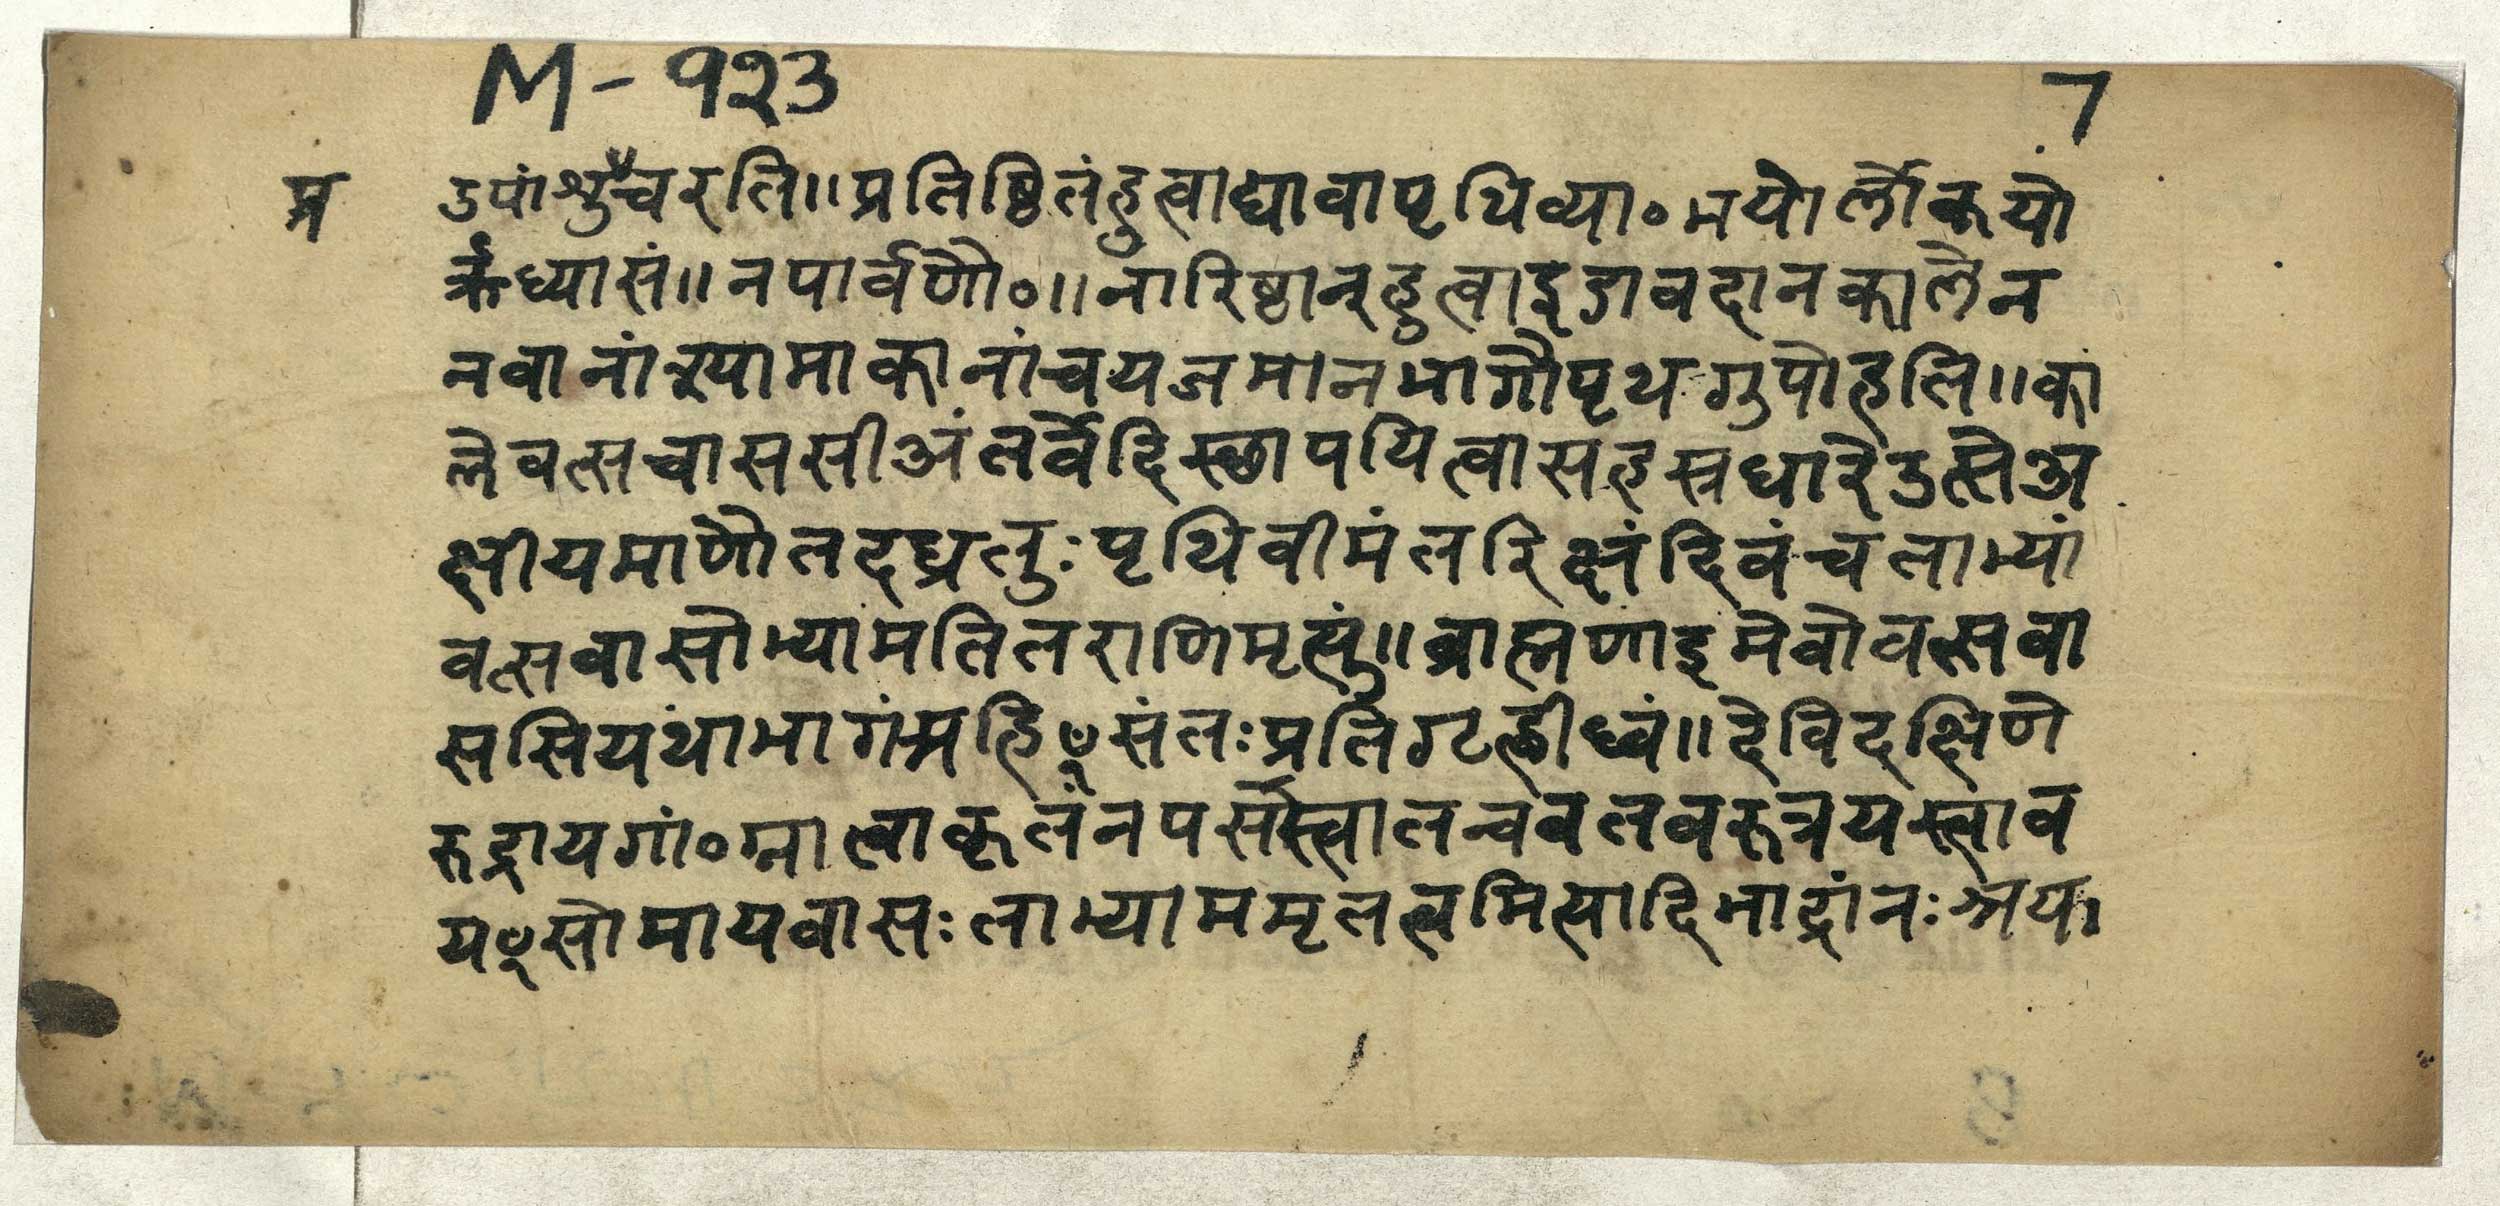 M-१२३
7
प्र
उपांशुंचरति॥प्रतिष्ठितंहुत्वाद्यावापृथिव्या०मयोर्लोकयो
र्ऋध्यासं॥नपार्वणौ०॥नारिष्ठान्हुत्वाइडावदानकालेन
नवानांश्यामाकानांचयजमानभागौपृथगुपोहति॥का
लेवत्सचाससीअंतर्वेदिस्छापयित्वासहस्रधारेउत्सेअ
क्षीयमाणौतदध्रतुःपृथिवीमंतरिक्षंदिवंचताभ्यां
वत्सवासोभ्यामतितराणिमृत्युं॥ब्राह्मणाइमेवोवत्सवा
ससियथाभागंप्रहिꣳसंतःप्रतिगृह्णीध्वं॥देविदक्षिणे
रुद्रायगां०ग्नात्वाकृतंनपसस्त्वातन्वतवरूत्रयस्त्वाव
यꣳसोमायवासःताभ्याममृतत्वमित्यादिभाद्रांनःश्रय